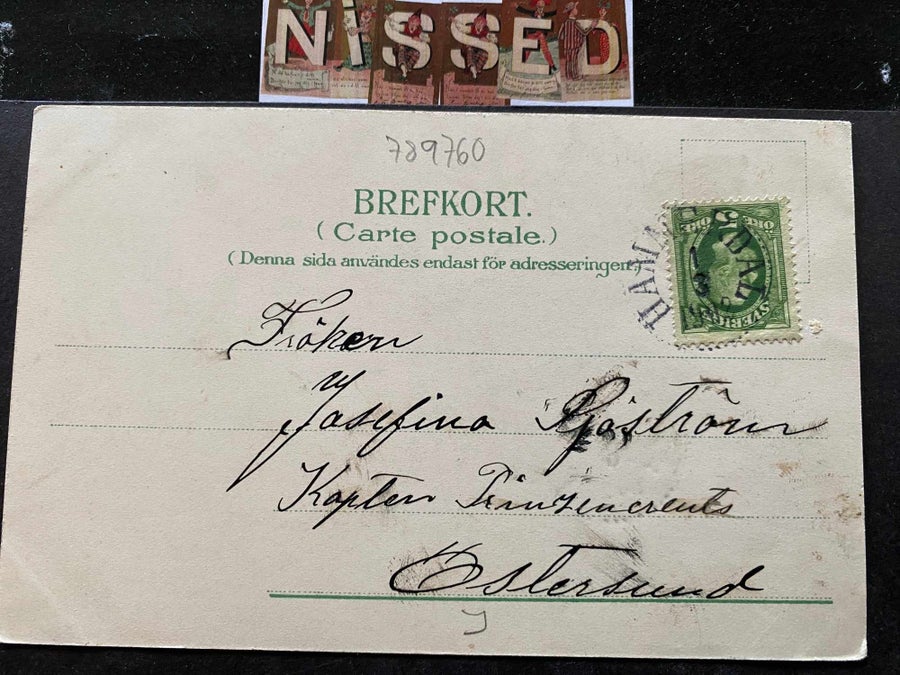 NISSED
789760
BREFKORT.
(Carte postale.)
(Denna sida användes endast för adresseringen.)
HAMMERDAL
1
3
5 ÖRE
SVERIGE
Fröken
Josefina Sjöström
Kapten
Östersund